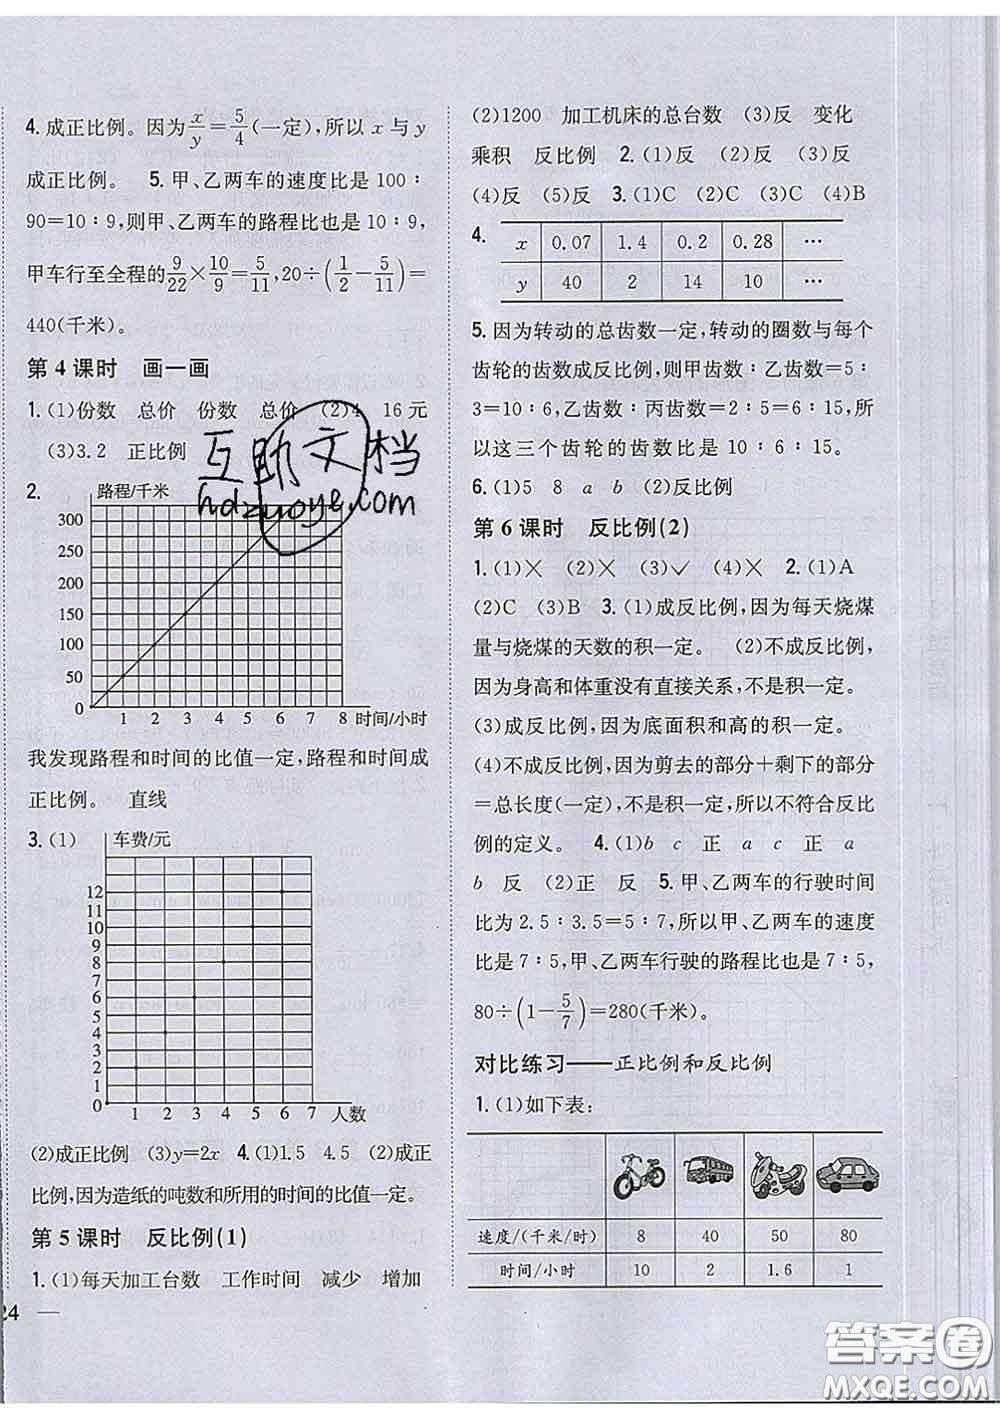 4. 成正比例。因为x/y=5/4(一定),所以 x 与 y
成正比例。 5. 甲、乙两车的速度比是 100∶
90=10∶9,则甲、乙两车的路程比也是 10∶9,
甲车行至全程的9/22×10/9=5/11,20÷(1/2-5/11)=
440(千米)。
第 4 课时 画一画
1. (1)份数 总价 份数 总价 (2)4 16 元
(3)3.2 正比例
2. 路程/千米
300
250
200
150
100
50
0
1 2 3 4 5 6 7 8 时间/小时
我发现路程和时间的比值一定,路程和时间成
正比例。 直线
3. (1) 车费/元
12
11
10
9
8
7
6
5
4
3
2
1
0
1 2 3 4 5 6 7 人数
(2)成正比例 (3)y=2x 4. (1)1.5 4.5 (2)成正
比例,因为造纸的吨数和所用的时间的比值一定。
第 5 课时 反比例(1)
1. (1)每天加工台数 工作时间 减少 增加
24
(2)1200 加工机床的总台数 (3)反 变化
乘积 反比例 2. (1)反 (2)反 (3)反
(4)反 (5)反 3. (1)C (2)C (3)C (4)B
4. x 0.07 1.4 0.2 0.28 …
y 40 2 14 10 …
5. 因为转动的总齿数一定,转动的圈数与每个
齿轮的齿数成反比例,则甲齿数∶乙齿数=5∶
3=10∶6,乙齿数∶丙齿数=2∶5=6∶15,所
以这三个齿轮的齿数比是 10∶6∶15。
6. (1)5 8 a b (2)反比例
第 6 课时 反比例(2)
1. (1)× (2)× (3)✓ (4)× 2. (1)A
(2)C (3)B 3. (1)成反比例,因为每天烧煤
量与烧煤的天数的积一定。 (2)不成反比例,
因为身高和体重没有直接关系,不是积一定。
(3)成反比例,因为底面积和高的积一定。
(4)不成反比例,因为剪去的部分+剩下的部分
=总长度(一定),不是积一定,所以不符合反比
例的定义。 4. (1)b c 正 a c 正 a
b 反 (2)正 反 5. 甲、乙两车的行驶时间
比为 2.5∶3.5=5∶7,所以甲、乙两车的速度
比是 7∶5,甲、乙两车行驶的路程比是 7∶5,
80÷(1-5/7)=280(千米)。
对比练习——正比例和反比例
1. (1)如下表:
速度/(千米/时) 8 40 50 80
时间/小时 10 2 1.6 1
互助文档
hdzuoye.com
答案圈
MXQE.COM